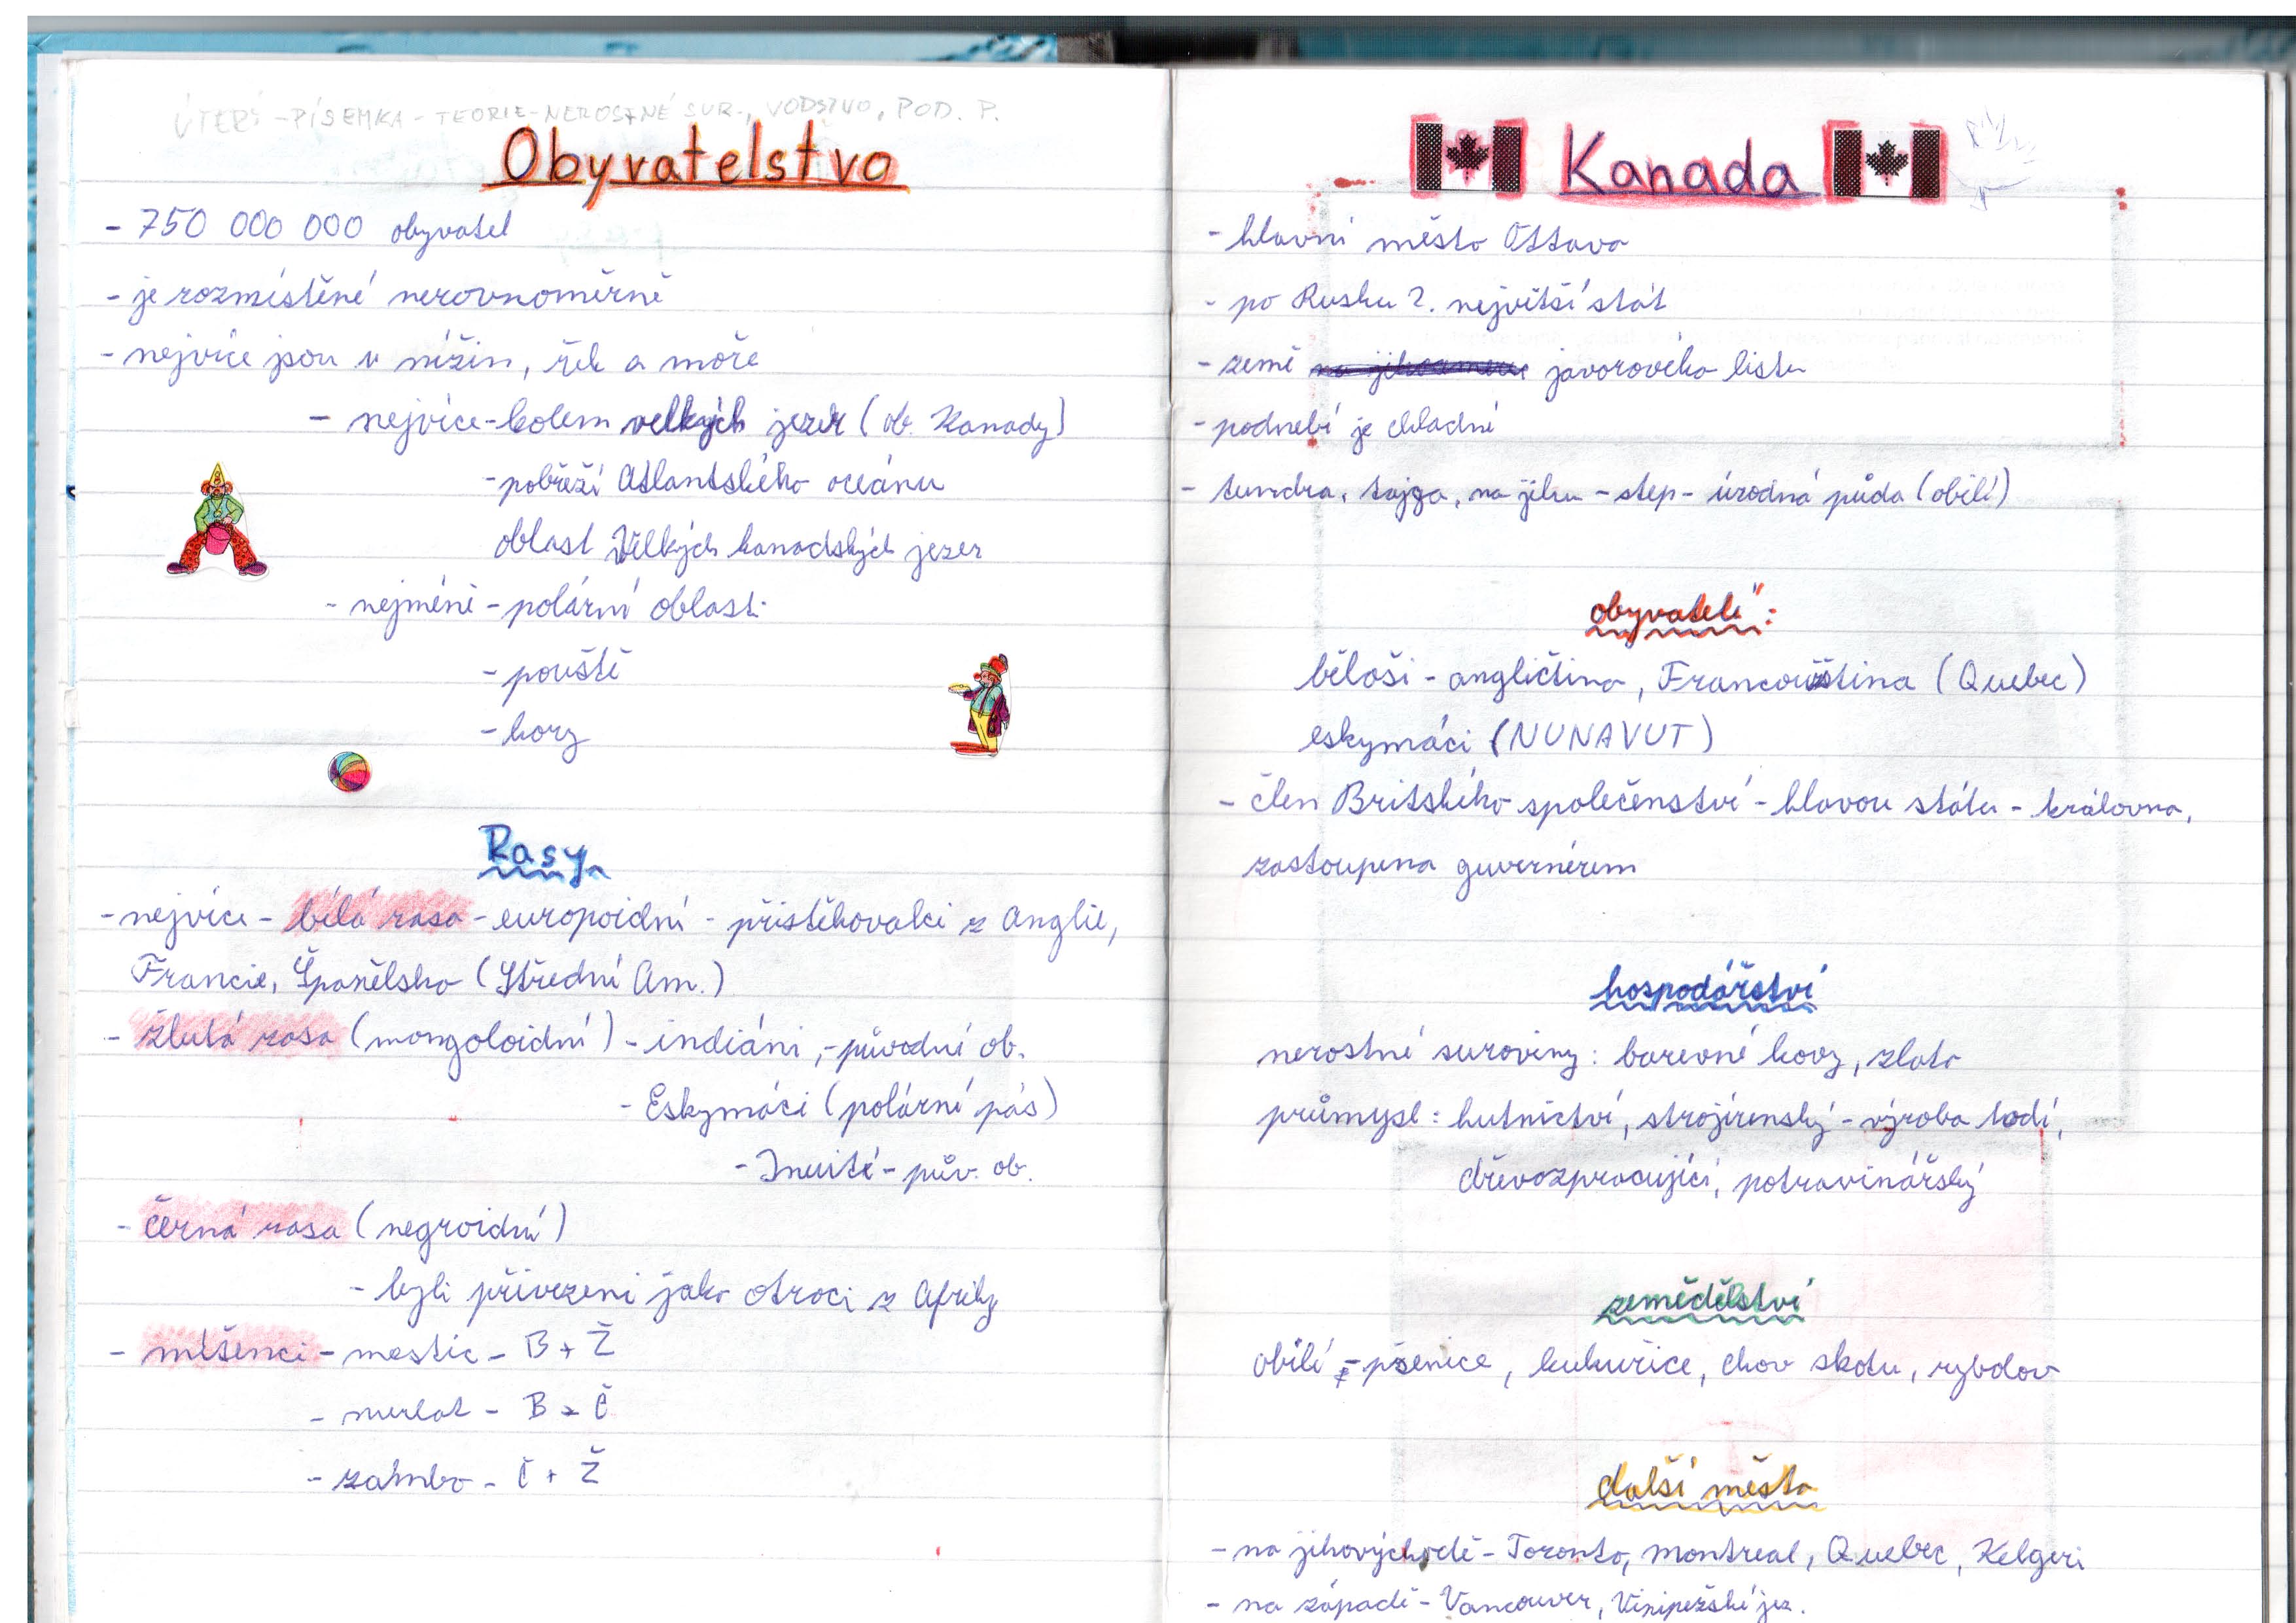 ÚTERÝ - PÍSEMKA - TEORIE - NEROSTNÉ SUR., VODSTVO, POD. P.
Obyvatelstvo
- 750 000 000 obyvatel
- je rozmístěné nerovnoměrně
- nejvíce jsou v nížin, řek a moře
- nejvíce - kolem velkých jezer (ob. Kanady)
- pobřeží Atlantského oceánu
oblast Velkých kanadských jezer
- nejméně - polární oblasti
- pouště
- hory
Rasy
- nejvíce - bílá rasa - europoidní - přistěhovalci z Anglie,
Francie, Španělska (Střední Am.)
- žlutá rasa (mongoloidní) - indiáni, - původní ob.
- Eskymáci (polární pás)
- Inuité - pův. ob.
- černá rasa (negroidní)
- byli přivezeni jako otroci z Afriky
- míšenci - mestic - B + Ž
- mulat - B + Č
- zambo - Č + Ž
Kanada
- hlavní město Ottava
- po Rusku 2. největší stát
- země javorového listu
- podnebí je chladné
- tundra, tajga, na jihu - step - úrodná půda (obilí)
obyvatelé:
běloši - angličtina, Francouzština (Quebec)
eskymáci (NUNAVUT)
- člen Britského společenství - hlavou státu - královna,
zastoupena guvernérem
hospodářství
nerostné suroviny: barevné kovy, zlato
průmysl: hutnictví, strojírenský - výroba lodí,
dřevozpracující, potravinářský
zemědělství
obilí - pšenice, kukuřice, chov skotu, rybolov
další města
- na jihovýchodě - Toronto, montreal, Quebec, Kelgeri
- na západě - Vancouver, Vinipežské jez.